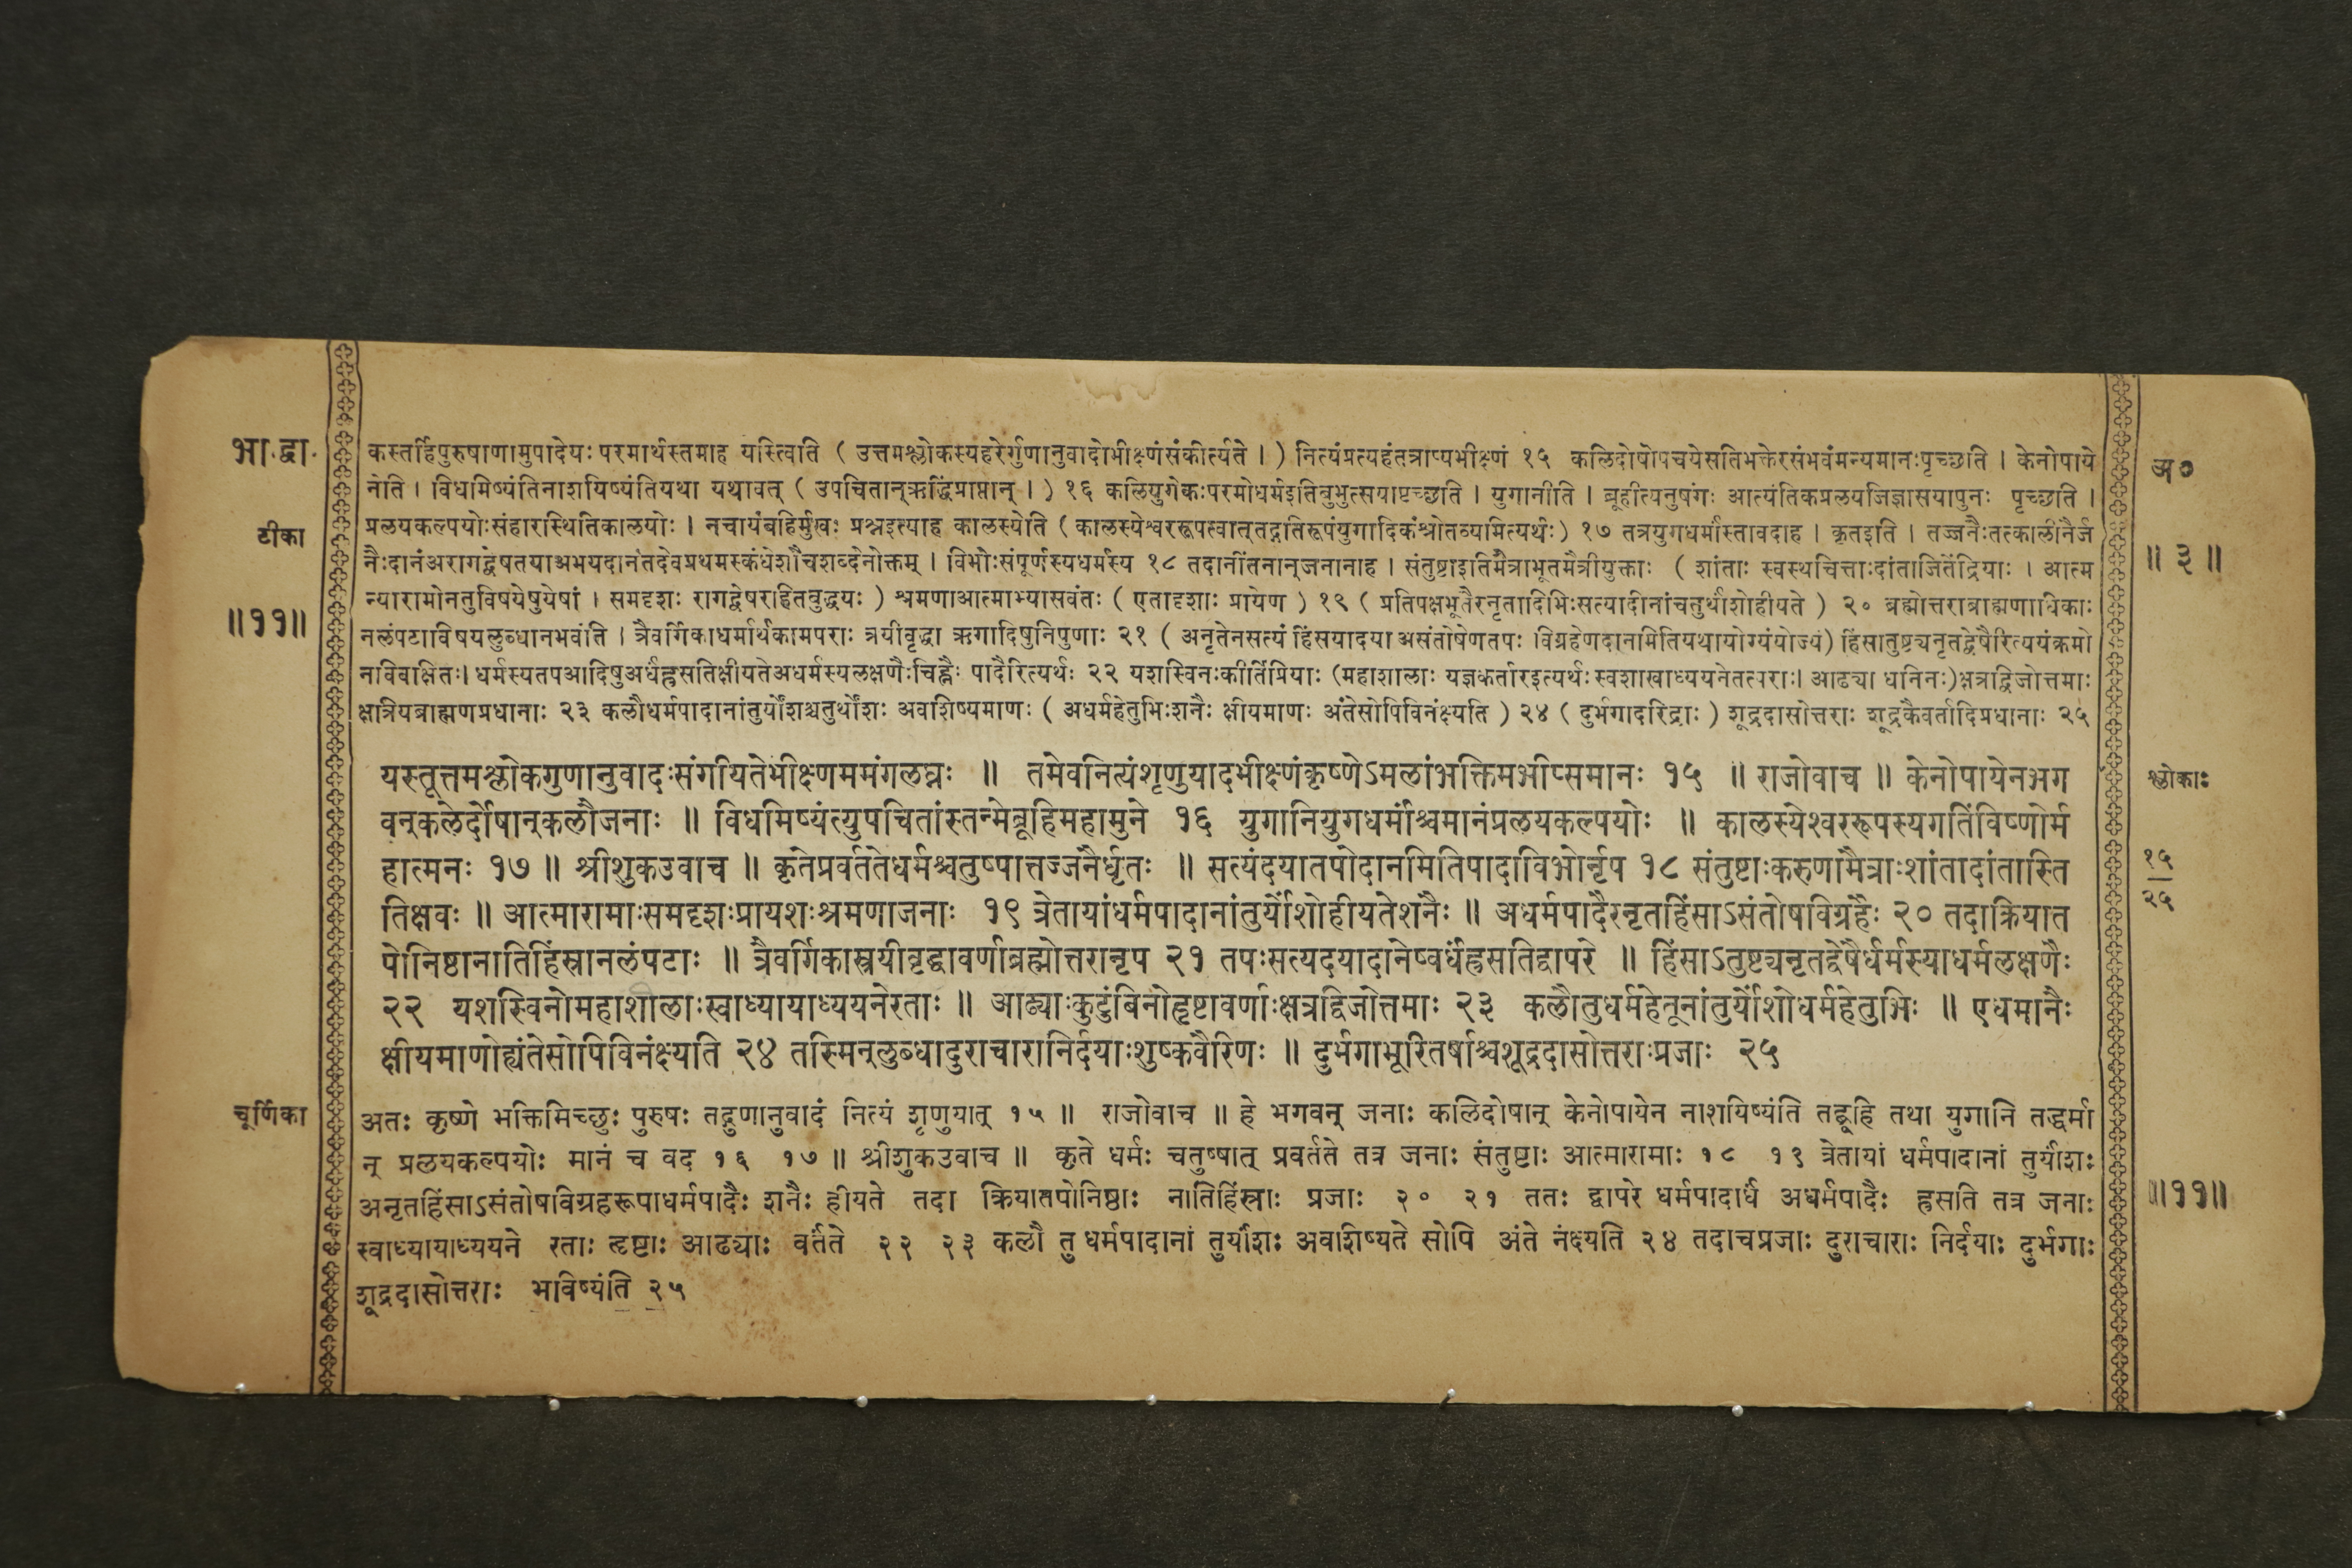 भा.द्वा.
टीका
॥११॥
कस्तर्हिपुरुषाणामुपादेयः परमार्थस्तमाह यस्त्विति ( उत्तमश्लोकस्यहरेर्गुणानुवादोभीक्ष्णंसंकीर्त्यते । ) नित्यंप्रत्यहंतत्राप्यभीक्ष्णं १५ कलिदोषोपचयेसतिभक्तेरसंभवंमन्यमानःपृच्छति । केनोपाये
नेति । विधमिष्यंतिनाशयिष्यंतियथा यथावत् ( उपचितान्ऋद्धिंप्राप्तान् । ) १६ कलियुगेकःपरमोधर्मइतिबुभुत्सयापृच्छति । युगानीति । ब्रूहीत्यनुषंगः आत्यंतिकप्रलयजिज्ञासयापुनः पृच्छति ।
प्रलयकल्पयोःसंहारस्थितिकालयोः । नचायंबहिर्मुखः प्रश्नइत्याह कालस्येति ( कालस्येश्वररूपत्वात्तद्गतिरूपंयुगादिकंश्रोतव्यमित्यर्थः) १७ तत्रयुगधर्मांस्तावदाह । कृतइति । तज्जनैःतत्कालीनैर्ज
नैःदानंअरागद्वेषतयाअभयदानंतदेवप्रथमस्कंधेशौचशब्देनोक्तम् । विभोःसंपूर्णस्यधर्मस्य १८ तदानींतनान्जनानाह । संतुष्टाइतिमैत्राभूतमैत्रीयुक्ताः ( शांताः स्वस्थचित्ताःदांताजितेंद्रियाः । आत्म
न्यारामोनतुविषयेषुयेषां । समदृशः रागद्वेषरहितबुद्धयः ) श्रमणाआत्माभ्यासवंतः ( एतादृशाः प्रायेण ) १९ ( प्रतिपक्षभूतैरनृतादिभिःसत्यादीनांचतुर्थांशोहीयते ) २० ब्रह्मोत्तराब्राह्मणाधिकाः
नलंपटाविषयलुब्धानभवंति । त्रैवर्गिकाधर्मार्थकामपराः त्रयीवृद्धा ऋगादिषुनिपुणाः २१ ( अनृतेनसत्यं हिंसयादया असंतोषेणतपः ।विग्रहेणदानमितियथायोग्यंयोज्यं) हिंसातुष्ट्यनृतद्वेषैरित्ययंक्रमो
नविवाक्षितः। धर्मस्यतपआदिषुअर्धंह्रसतिक्षीयतेअधर्मस्यलक्षणैःचिह्नैः पादैरित्यर्थः २२ यशस्विनःकीर्तिप्रियाः (महाशालाः यज्ञकर्तारइत्यर्थःस्वशाखाध्ययनेतत्पराः। आढ्या धनिनः)क्षत्रद्विजोत्तमाः
क्षत्रियब्राह्मणप्रधानाः २३ कलौधर्मपादानांतुर्योंशश्चतुर्थोंशः अवशिष्यमाणः ( अधर्महेतुभिःशनैः क्षीयमाणः अंतेसोपिविनंक्ष्यति ) २४ ( दुर्भगादरिद्राः ) शूद्रदासोत्तराः शूद्रकैवर्तादिप्रधानाः २५
अ०
॥ ३ ॥
यस्तूत्तमश्लोकगुणानुवादःसंगीयतेभीक्ष्णममंगलघ्नः ॥ तमेवनित्यंशृणुयादभीक्ष्णंकृष्णेऽमलांभक्तिमभीप्समानः १५ ॥ राजोवाच ॥ केनोपायेनभग
वन्कलेर्दोषान्कलौजनाः ॥ विधमिष्यंत्युपचितांस्तन्मेब्रूहिमहामुने १६ युगानियुगधर्मांश्चमानंप्रलयकल्पयोः ॥ कालस्येश्वररूपस्यगतिंविष्णोर्म
हात्मनः १७ ॥ श्रीशुकउवाच ॥ कृतेप्रवर्ततेधर्मश्चतुष्पात्तज्जनैर्धृतः ॥ सत्यंदयातपोदानमितिपादाविभोर्नृप १८ संतुष्टाःकरुणामैत्राःशांतादांतास्ति
तिक्षवः ॥ आत्मारामाःसमदृशःप्रायशःश्रमणाजनाः १९ त्रेतायांधर्मपादानांतुर्योंशोहीयतेशनैः ॥ अधर्मपादैरनृतहिंसाऽसंतोषविग्रहैः २० तदाक्रियात
पोनिष्ठानातिहिंस्रानलंपटाः ॥ त्रैवर्गिकास्त्रयीवृद्धावर्णाब्रह्मोत्तरानृप २१ तपःसत्यदयादानेष्वर्धंह्रसतिद्वापरे ॥ हिंसाऽतुष्ट्यनृतद्वेषैर्धर्मस्याधर्मलक्षणैः
२२ यशस्विनोमहाशीलाःस्वाध्यायाध्ययनेरताः ॥ आढ्याःकुटुंबिनोहृष्टावर्णाःक्षत्रद्विजोत्तमाः २३ कलौतुधर्महेतूनांतुर्योंशोधर्महेतुभिः ॥ एधमानैः
क्षीयमाणोह्यंतेसोपिविनंक्ष्यति २४ तस्मिन्लुब्धादुराचारानिर्दयाःशुष्कवैरिणः ॥ दुर्भगाभूरितर्षाश्चशूद्रदासोत्तराःप्रजाः २५
श्लोकाः
१५
२५
चूर्णिका
अतः कृष्णे भक्तिमिच्छुः पुरुषः तद्गुणानुवादं नित्यं शृणुयात् १५ ॥ राजोवाच ॥ हे भगवन् जनाः कलिदोषान् केनोपायेन नाशयिष्यंति तद्ब्रूहि तथा युगानि तद्धर्मा
न् प्रलयकल्पयोः मानं च वद १६ १७ ॥ श्रीशुकउवाच ॥ कृते धर्मः चतुष्पात् प्रवर्तते तत्र जनाः संतुष्टाः आत्मारामाः १८ १९ त्रेतायां धर्मपादानां तुर्यांशः
अनृतहिंसाऽसंतोषविग्रहरूपाधर्मपादैः शनैः हीयते तदा क्रियातपोनिष्ठाः नातिहिंस्राः प्रजाः २० २१ ततः द्वापरे धर्मपादार्धं अधर्मपादैः ह्रसति तत्र जनाः
स्वाध्यायाध्ययने रताः हृष्टाः आढ्याः वर्तते २२ २३ कलौ तु धर्मपादानां तुर्यांशः अवशिष्यते सोपि अंते नंक्ष्यति २४ तदाचप्रजाः दुराचाराः निर्दयाः दुर्भगाः
शूद्रदासोत्तराः भविष्यंति २५
॥११॥